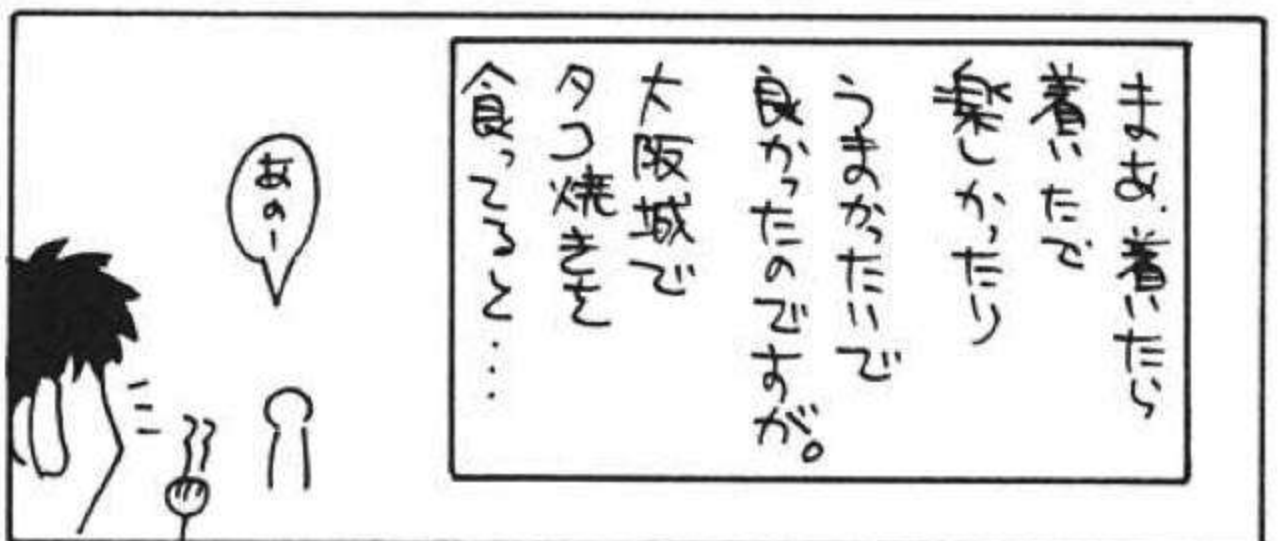 まあ、着いたら
着いたで
楽しかったり
うまかったいで
良かったのですが。
大阪城で
タコ焼きを
食ってると・・・
あのー